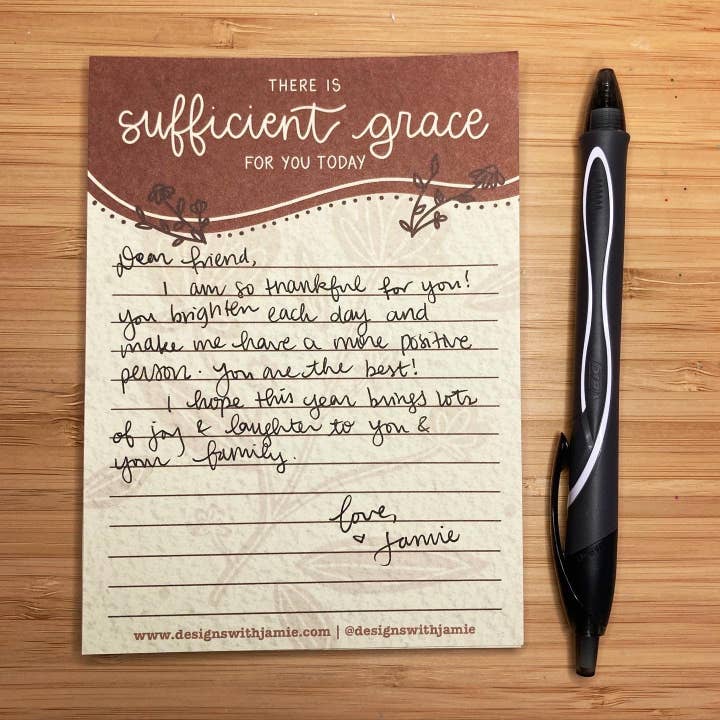 THERE IS
sufficient grace
FOR YOU TODAY
Dear friend,
I am so thankful for you!
you brighten each day and
make me have a more positive
person. you are the best!
I hope this year brings lots
of joy & laughter to you &
your family.
love,
Jamie
www.designswithjamie.com | @designswithjamie